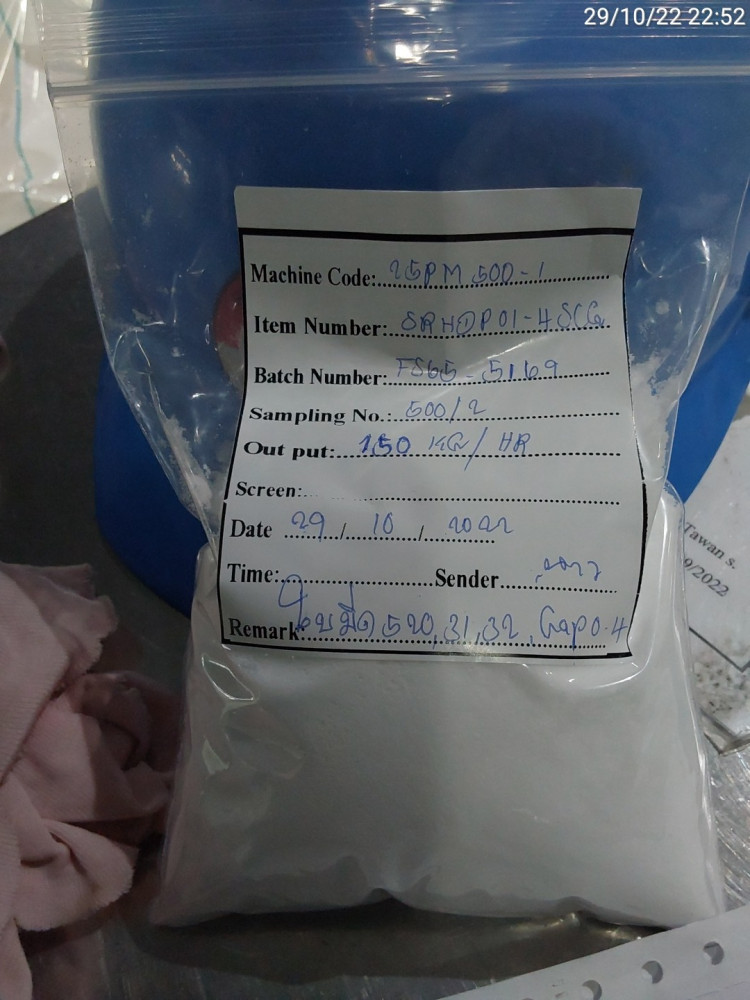 29/10/22 22:52
Machine Code: 25PM 500-1
Item Number: SRHDP01-4SCG
Batch Number: FS65-5169
Sampling No.: 500/2
Out put: 150 KG/HR
Screen:
Date 29 / 10 / 2022
Time: Sender
Remark: ใบมีด 520,31,32, Gap 0.4
Tawan s.
9/2022